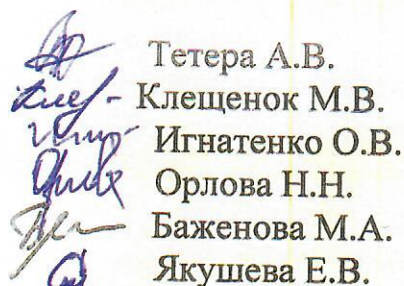 Тетера А.В.
Клещенок М.В.
Игнатенко О.В.
Орлова Н.Н.
Баженова М.А.
Якушева Е.В.